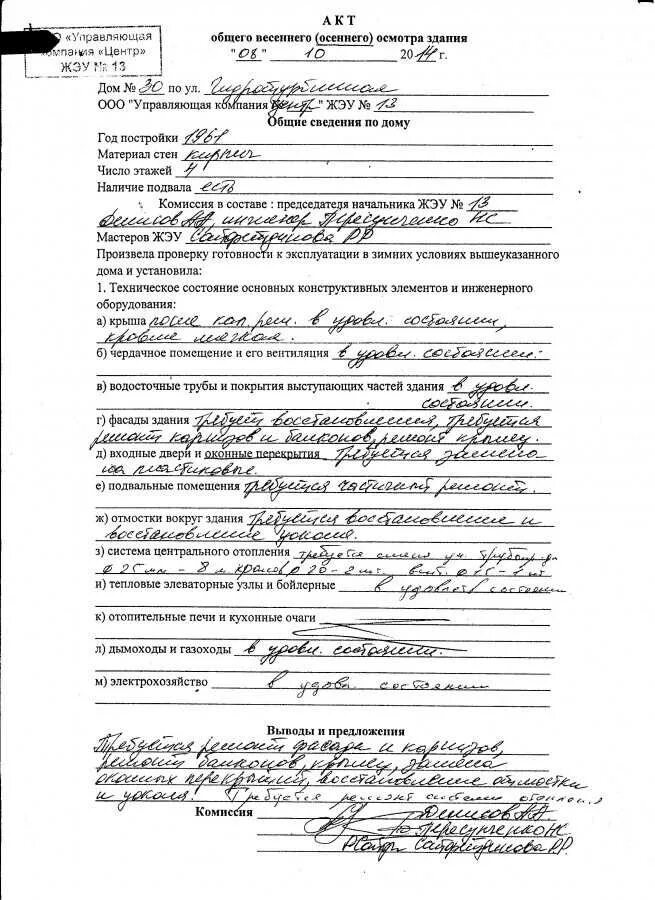 АКТ
общего весеннего (осеннего) осмотра здания
"08" 10 2014г.
О «Управляющая
мпания «Центр»
ЖЭУ № 13
Дом № 30 по ул. Гидротурбинная
ООО "Управляющая компания Центр" ЖЭУ № 13
Общие сведения по дому
Год постройки 1961
Материал стен кирпич
Число этажей 4
Наличие подвала есть
Комиссия в составе : председателя начальника ЖЭУ № 13
Денисов АА, инженер Пересунченко НС
Мастеров ЖЭУ РР
Произвела проверку готовности к эксплуатации в зимних условиях вышеуказанного
дома и установила:
1. Техническое состояние основных конструктивных элементов и инженерного
оборудования:
а) крыша после кап. рем. в удовл. состоянии,
кровля мягкая.
б) чердачное помещение и его вентиляция в удовл. состоянии.
в) водосточные трубы и покрытия выступающих частей здания в удовл.
состоянии.
г) фасады здания требует восстановления, требуется
ремонт карнизов и балконов, ремонт крылец.
д) входные двери и оконные перекрытия требуется замена
на пластиковые.
е) подвальные помещения требуется частичный ремонт.
ж) отмостки вокруг здания требуется восстановление и
восстановление цоколя.
з) система центрального отопления требуется смена уч. трубопр-да
ф 25 мм - 8 м кранов ф 20 - 2 шт,
и) тепловые элеваторные узлы и бойлерные в удовлет состоянии
к) отопительные печи и кухонные очаги
л) дымоходы и газоходы в удовл. состоянии.
м) электрохозяйство в удовл. состоянии
Выводы и предложения
Требуется ремонт фасада и карнизов,
ремонт балконов, крылец, замена
оконных перекрытий, восстановление отмостки
и цоколя. Требуется ремонт системы отопления
Комиссия Денисов АА.
Пересунченко НС
РР.